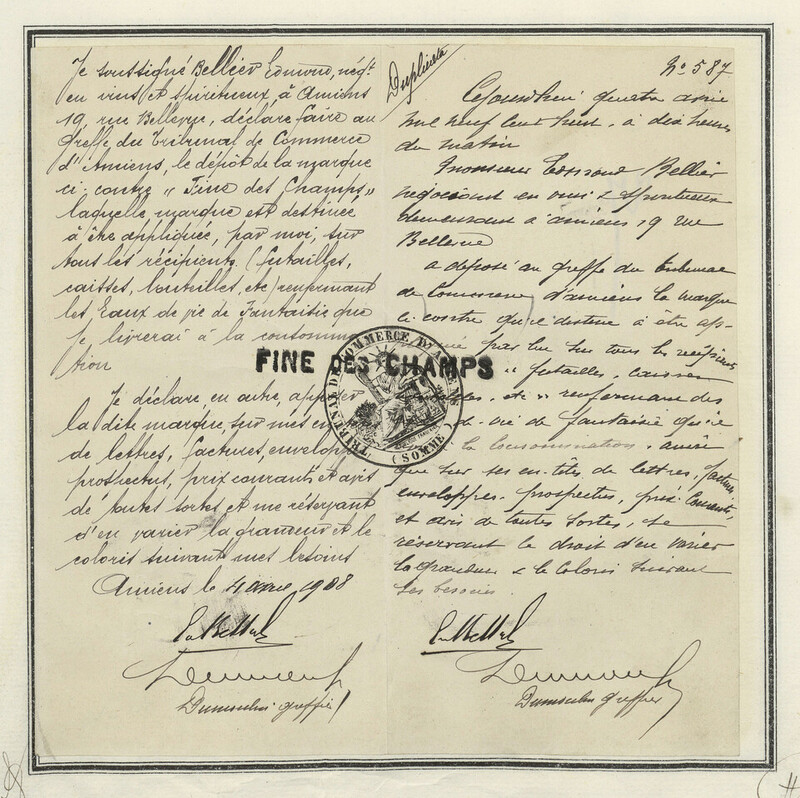 Je soussigné Bellier Edmond, négt
en vins et spiritueux, à Amiens
19, rue Bellevue, déclare faire au
Greffe du Tribunal de Commerce
d'Amiens, le dépôt de la marque
ci-contre "Fine des Champs"
laquelle marque est destinée
à être appliquée, par moi, sur
tous les récipients (futailles,
caisses, bouteilles, etc) renfermant
les Eaux de vie de Fantaisie que
je livrerai à la consomma
tion
Je déclare, en outre,
la dite marque, sur mes
de lettres, factures,
prospectus, prix courants et avis
de toutes sortes et me réservant
d'en varier la grandeur et le
coloris suivant mes besoins
Amiens le 4 1908
Dumoulin greffier
FINE DES CHAMPS
TRIBUNAL DE COMMERCE D'AMIENS
(SOMME)
Duplicata
No 587
Cejourd'hui quatre
mil neuf cent huit, à dix heures
du matin
Monsieur Edmond Bellier
négociant en vins & spiritueux
demeurant à Amiens 19 rue
Bellevue
a déposé au greffe du tribunal
de Commerce d'Amiens la marque
ci-contre qu'il destine à être ap-
par lui sur tous les récipients
"futailles, caisses
etc" renfermant des
de vie de fantaisie qu'il
la consommation, ainsi
que sur ses en-têtes de lettres, factures,
enveloppes, prospectus, prix-courants,
et avis de toutes sortes, se
réservant le droit d'en varier
la grandeur & le coloris suivant
ses besoins.
Dumoulin greffier